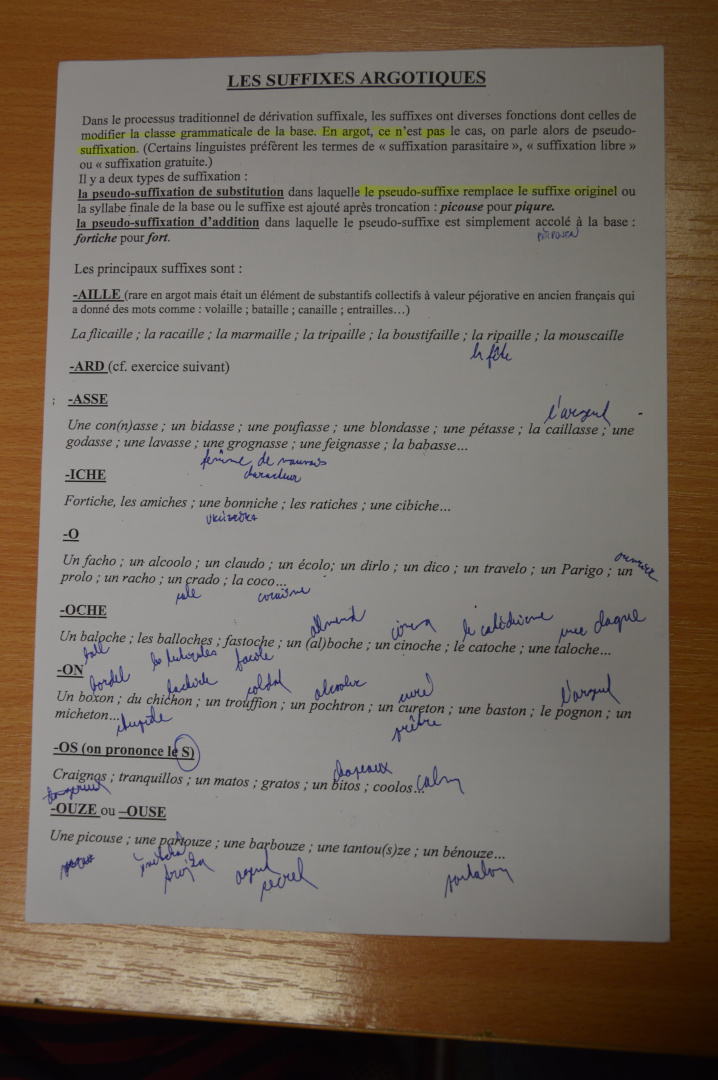 LES SUFFIXES ARGOTIQUES
Dans le processus traditionnel de dérivation suffixale, les suffixes ont diverses fonctions dont celles de
modifier la classe grammaticale de la base. En argot, ce n'est pas le cas, on parle alors de pseudo-
suffixation. (Certains linguistes préfèrent les termes de « suffixation parasitaire », « suffixation libre »
ou « suffixation gratuite.)
Il y a deux types de suffixation :
la pseudo-suffixation de substitution dans laquelle le pseudo-suffixe remplace le suffixe originel ou
la syllabe finale de la base ou le suffixe est ajouté après troncation : picouse pour piqure.
la pseudo-suffixation d'addition dans laquelle le pseudo-suffixe est simplement accolé à la base :
fortiche pour fort.
Les principaux suffixes sont :
-AILLE (rare en argot mais était un élément de substantifs collectifs à valeur péjorative en ancien français qui
a donné des mots comme : volaille ; bataille ; canaille ; entrailles…)
La flicaille ; la racaille ; la marmaille ; la tripaille ; la boustifaille ; la ripaille ; la mouscaille
la fête
-ARD (cf. exercice suivant)
-ASSE
l'argent
Une con(n)asse ; un bidasse ; une poufiasse ; une blondasse ; une pétasse ; la caillasse ; une
godasse ; une lavasse ; une grognasse ; une feignasse ; la babasse…
femme de mauvais
caractère
-ICHE
Fortiche, les amiches ; une bonniche ; les ratiches ; une cibiche…
-O
ouvrier
Un facho ; un alcoolo ; un claudo ; un écolo; un dirlo ; un dico ; un travelo ; un Parigo ; un
prolo ; un racho ; un crado ; la coco…
sale cocaïne
-OCHE
allemand cinema le catéchisme une claque
Un baloche ; les balloches ; fastoche ; un (al)boche ; un cinoche ; le catoche ; une taloche…
ball les testicules facile
-ON
bordel haschich soldat alcoolic curé l'argent
Un boxon ; du chichon ; un trouffion ; un pochtron ; un cureton ; une baston ; le pognon ; un
micheton…
prêtre
-OS (on prononce le S)
chapeaux
Craignos ; tranquillos ; un matos ; gratos ; un bitos ; coolos…
calm
dangereux
-OUZE ou –OUSE
Une picouse ; une partouze ; une barbouze ; une tantou(s)ze ; un bénouze…
agent
secret
pantalon